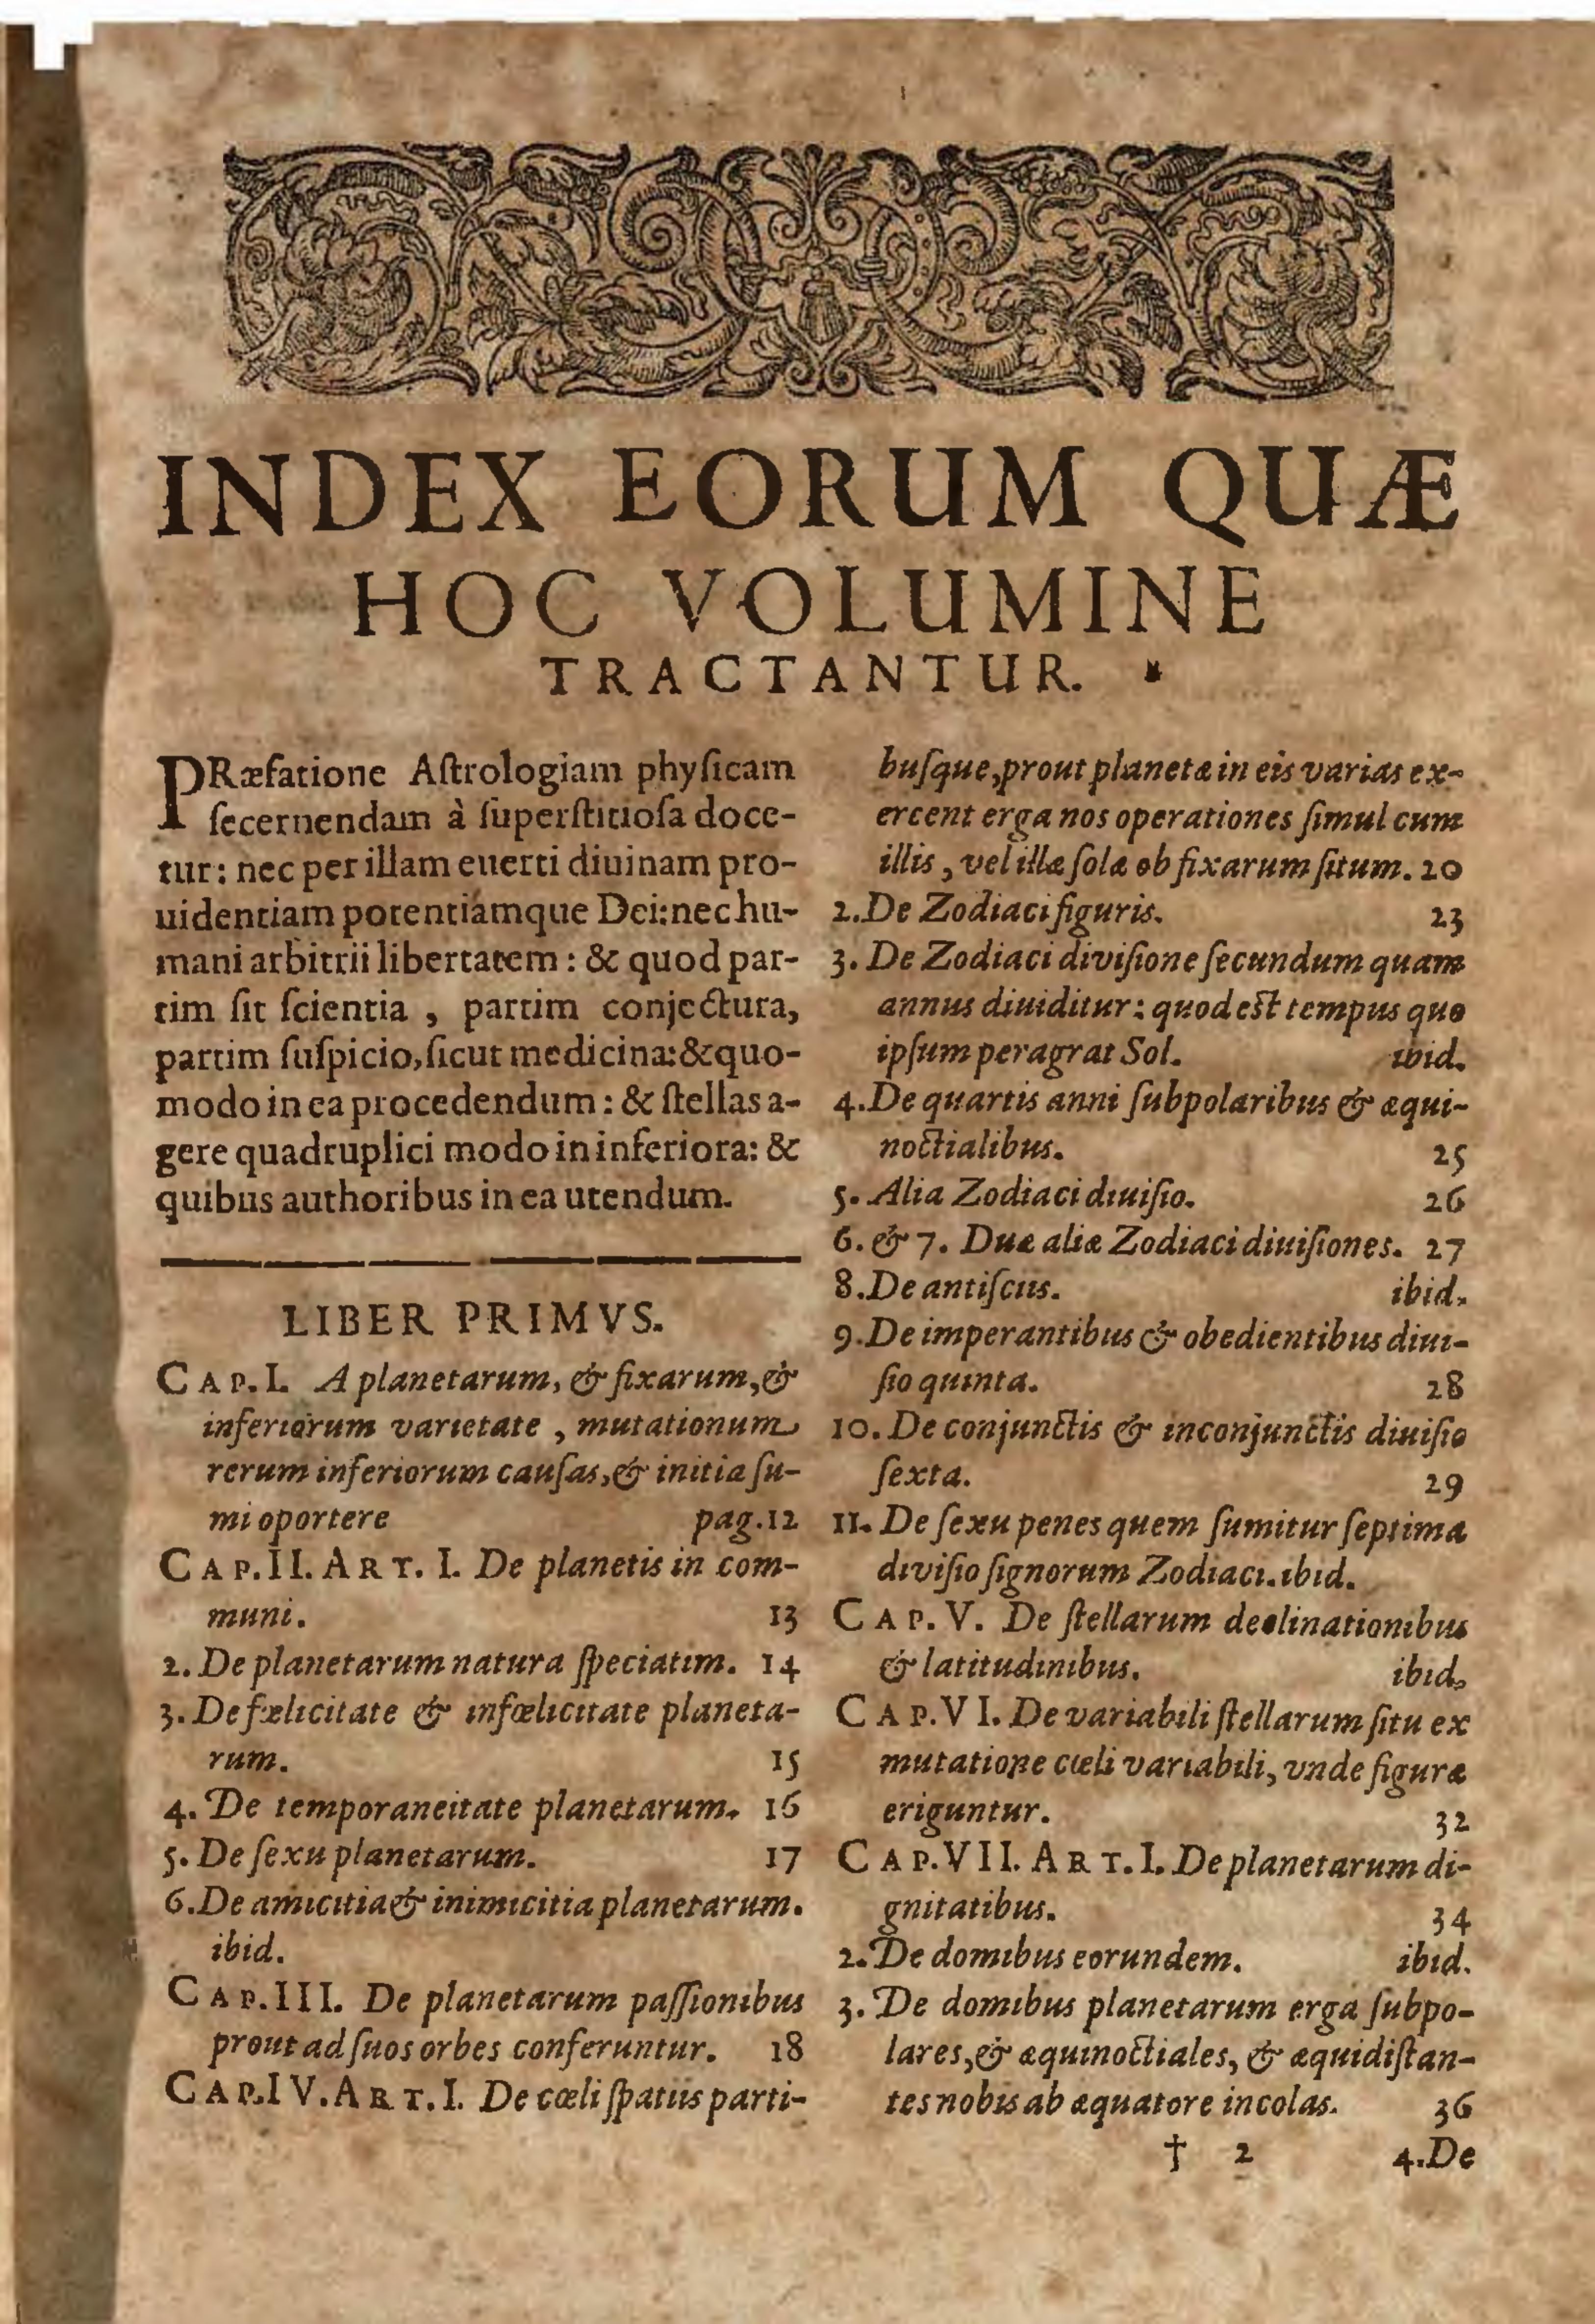 INDEX EORUM QUÆ
HOC VOLUMINE
TRACTANTUR.
PRæfatione Aſtrologiam phyſicam
ſecernendam à ſuperſtitioſa doce-
tur: nec per illam euerti diuinam pro-
uidentiam potentiámque Dei: nec hu-
mani arbitrii libertatem : & quod par-
tim ſit ſcientia , partim conjectura,
partim ſuſpicio, ſicut medicina: & quo-
modo in ea procedendum : & ſtellas a-
gere quadruplici modo in inferiora: &
quibus authoribus in ea utendum.
LIBER PRIMVS.
CAP. I. A planetarum, & fixarum, &
inferiorum varietate , mutationum
rerum inferiorum cauſas, & initia ſu-
mi oportere pag. 12
CAP. II. ART. I. De planetis in com-
muni. 13
2. De planetarum natura ſpeciatim. 14
3. De fælicitate & infœlicitate planeta-
rum. 15
4. De temporaneitate planetarum. 16
5. De ſexu planetarum. 17
6. De amicitia & inimicitia planetarum.
ibid.
CAP. III. De planetarum paſſionibus
prout ad ſuos orbes conferuntur. 18
CAP. IV. ART. I. De cœli ſpatiis parti-
buſque, prout planetæ in eis varias ex-
ercent erga nos operationes ſimul cum
illis , vel illæ ſolæ ob fixarum ſitum. 20
2. De Zodiaci figuris. 23
3. De Zodiaci diviſione ſecundum quam
annus diuiditur: quod est tempus quo
ipſum peragrat Sol. ibid.
4. De quartis anni ſubpolaribus & æqui-
noctialibus. 25
5. Alia Zodiaci diuiſio. 26
6. & 7. Duæ aliæ Zodiaci diuiſiones. 27
8. De antiſciis. ibid.
9. De imperantibus & obedientibus diui-
ſio quinta. 28
10. De conjunctis & inconjunctis diuiſio
ſexta. 29
11. De ſexu penes quem ſumitur ſeptima
diviſio ſignorum Zodiaci. ibid.
CAP. V. De ſtellarum declinationibus
& latitudinibus. ibid.
CAP. VI. De variabili ſtellarum ſitu ex
mutatione cœli variabili, vnde figuræ
eriguntur. 32
CAP. VII. ART. I. De planetarum di-
gnitatibus. 34
2. De domibus eorundem. ibid.
3. De domibus planetarum erga ſubpo-
lares, & æquinoctiales, & æquidiſtan-
tes nobis ab æquatore incolas. 36
† 2 4. De